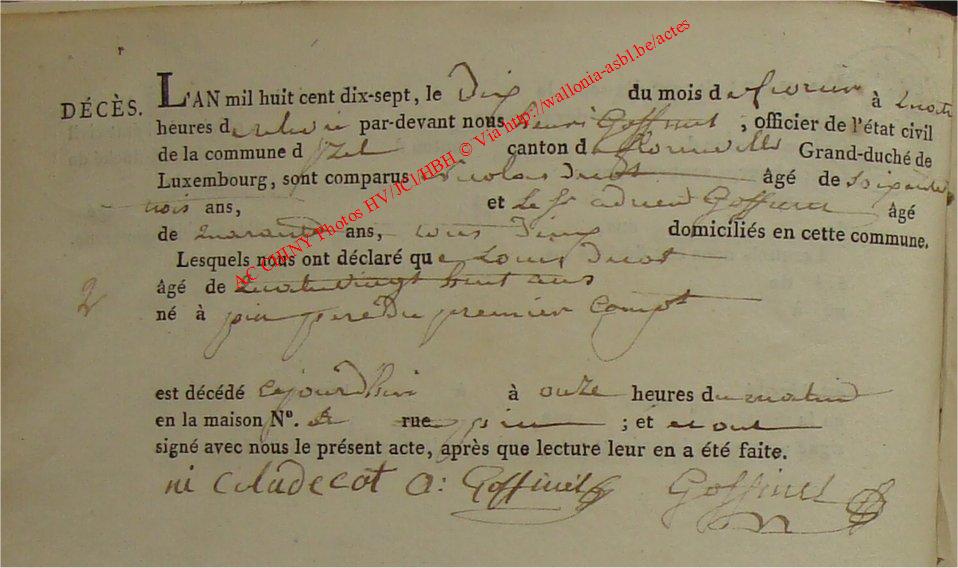 DÉCÈS. L'AN mil huit cent dix-sept, le Dix du mois de fevrier à quatre
heures de relevée par-devant nous henri Goffinet, officier de l'état civil
de la commune d'Izel canton de florenville Grand-duché de
Luxembourg, sont comparus nicolas Ducot âgé de soixante
trois ans, et le Sr Goffinet âgé
de quarante ans, tous Deux domiciliés en cette commune.
Lesquels nous ont déclaré que Louis Ducot
âgé de quatrevingt huit ans
2
né à pin pere Du premier Compt
est décédé cejourdhui à onze heures du matin
en la maison N°. rue pin ; et et ont
signé avec nous le présent acte, après que lecture leur en a été faite.
ni coladecot a: Goffinet Goffinet
AC CHINY Photos HV/JCI/HBH © Via http://wallonia-asbl.be/actes